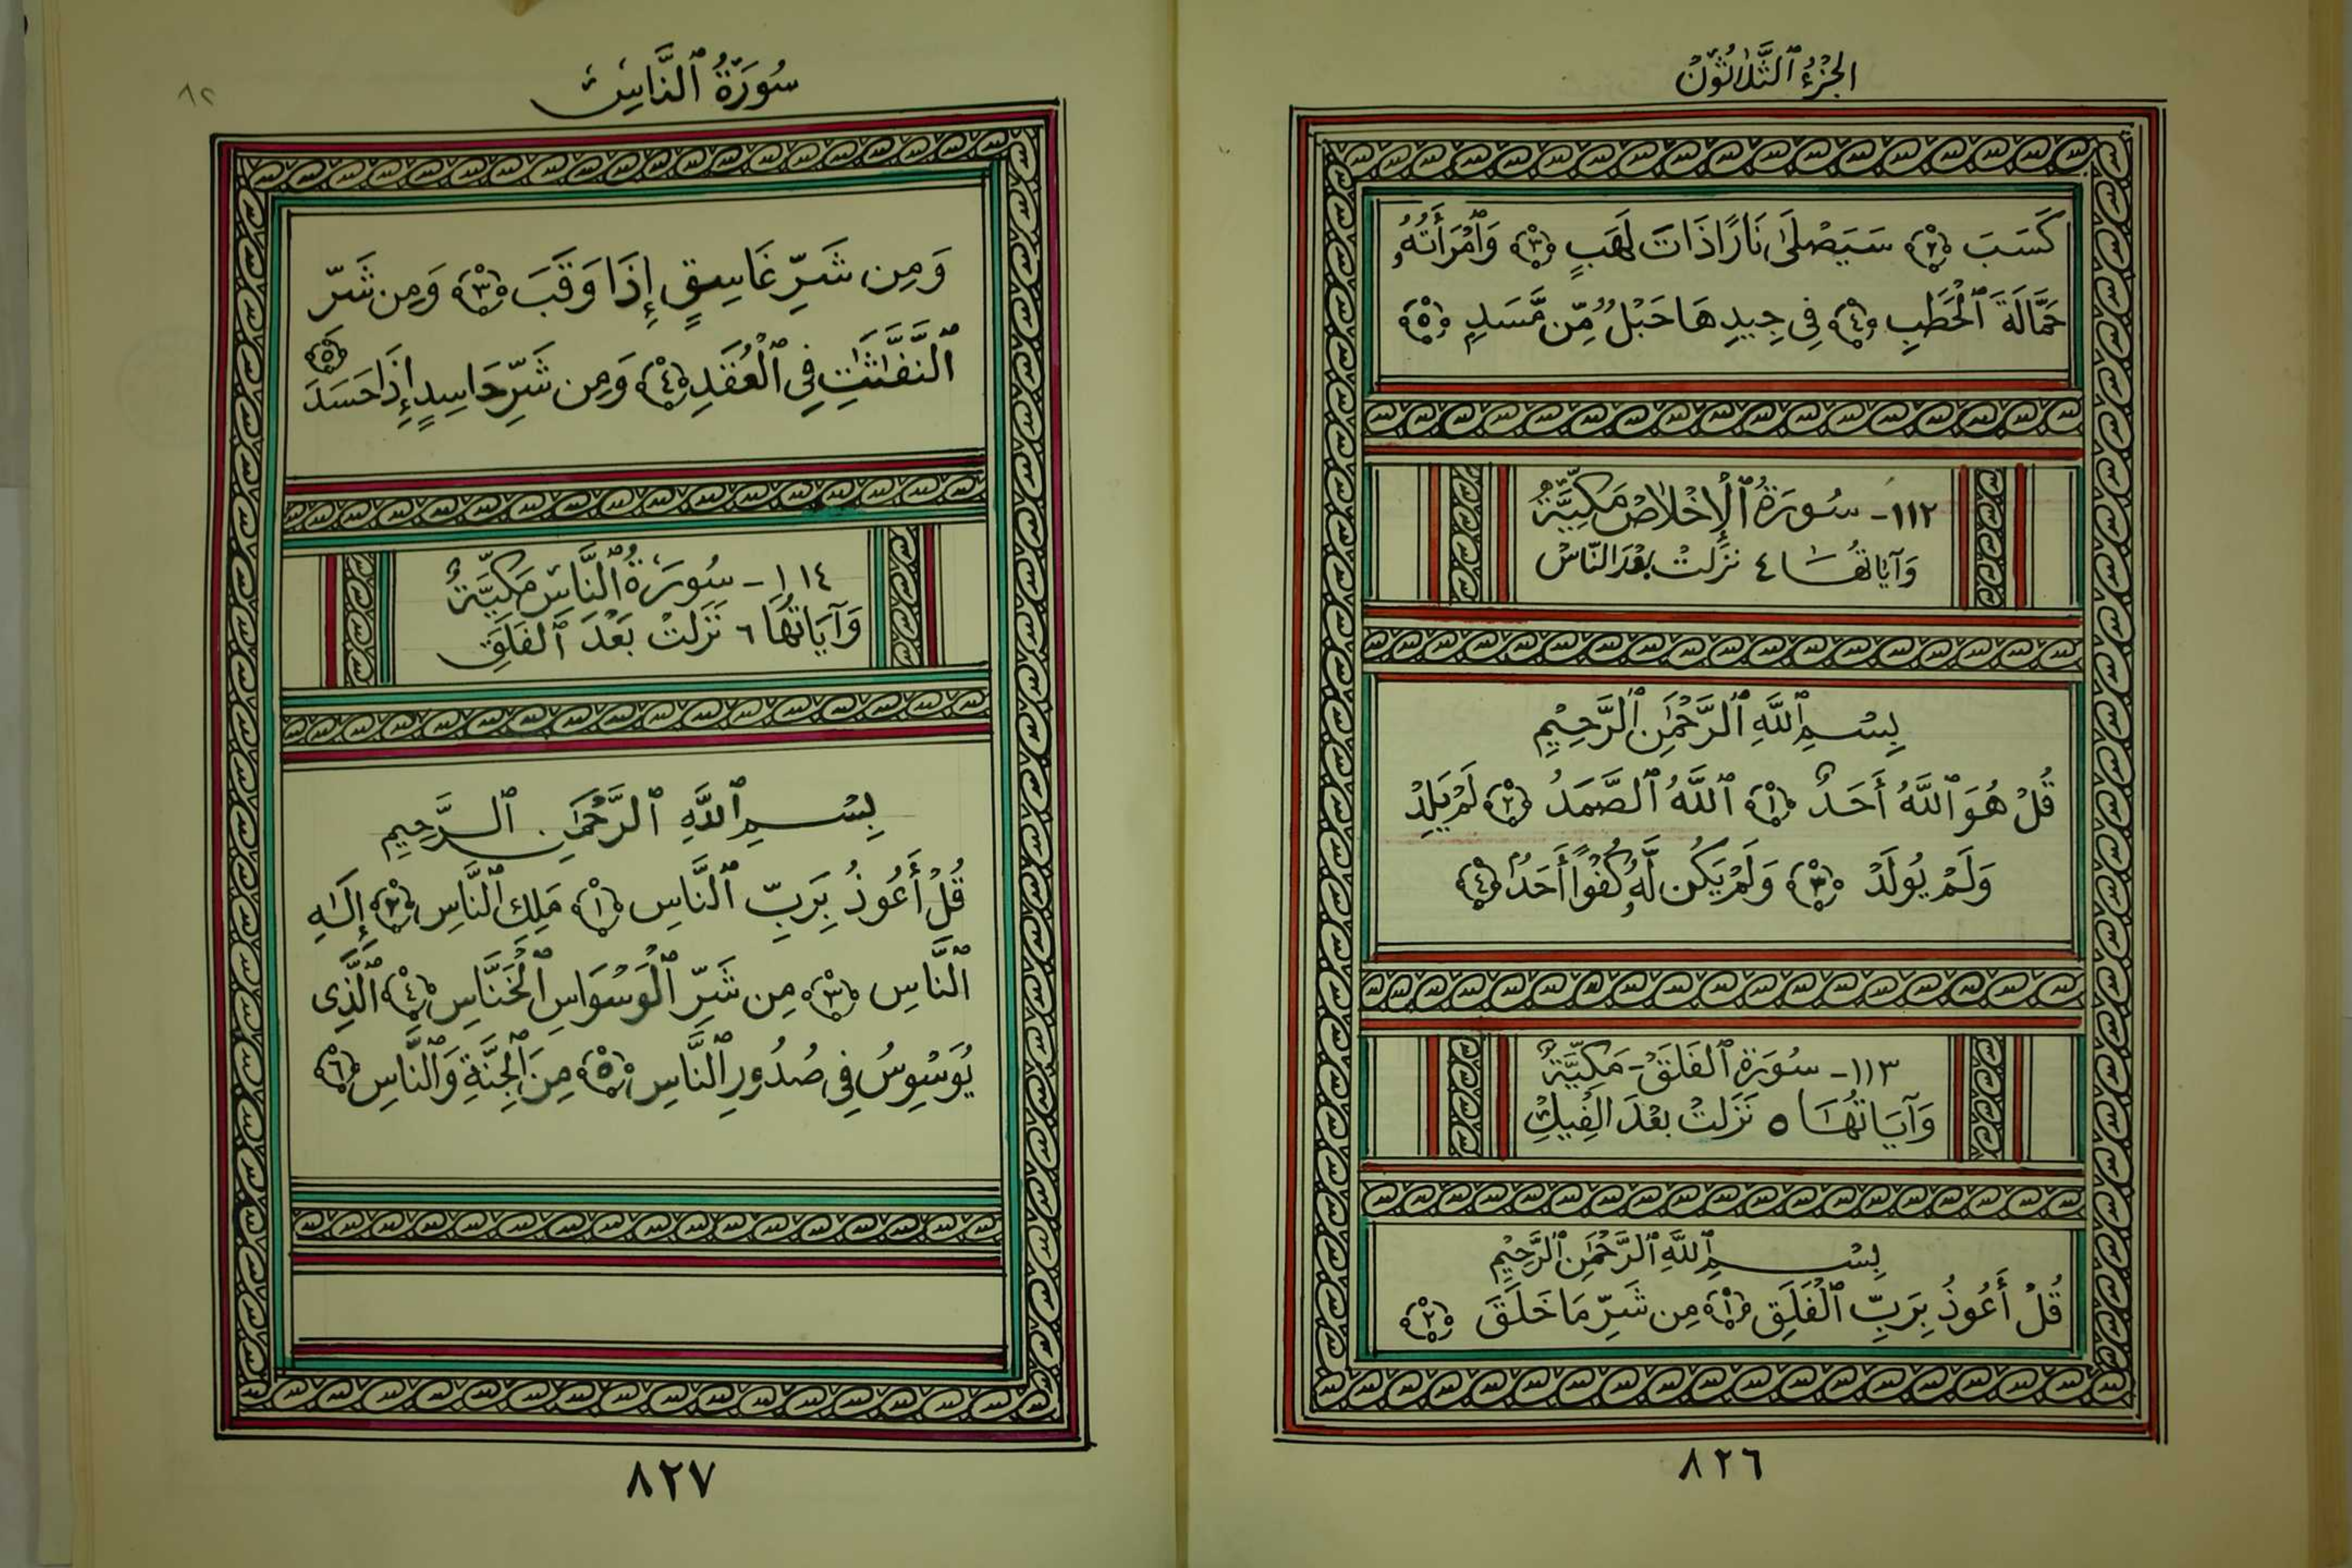 الجزءُ ٱلثَّلَاثُونْ
كَسَبَ ﴿٢﴾ سَيَصْلَىٰ نَارًا ذَاتَ لَهَبٍ ﴿٣﴾ وَٱمْرَأَتُهُۥ
حَمَّالَةَ ٱلْحَطَبِ ﴿٤﴾ فِى جِيدِهَا حَبْلٌ مِّن مَّسَدٍ ﴿٥﴾
١١٢- سُورَةُ ٱلْإِخْلَاصْ مَكِيَّةٌ
وَآيَاتُهَا ٤ نَزَلَتْ بَعْدَ النَّاسْ
بِسْمِ ٱللَّهِ ٱلرَّحْمَٰنِ ٱلرَّحِيْمِ
قُلْ هُوَ ٱللَّهُ أَحَدٌ ﴿١﴾ ٱللَّهُ ٱلصَّمَدُ ﴿٢﴾ لَمْ يَلِدْ
وَلَمْ يُولَدْ ﴿٣﴾ وَلَمْ يَكُن لَّهُۥ كُفُوًا أَحَدٌ ﴿٤﴾
١١٣- سُورَةُ ٱلفَلَقْ - مَكِيَّةٌ
وَآيَاتُهَا ٥ نَزَلَتْ بَعْدَ الفِيلِ
بِسْمِ ٱللَّهِ ٱلرَّحْمَٰنِ ٱلرَّحِيْمِ
قُلْ أَعُوذُ بِرَبِّ ٱلْفَلَقِ ﴿١﴾ مِن شَرِّ مَا خَلَقَ ﴿٢﴾
٨٢٦
سُورَةُ ٱلنَّاسْ
٨٢
وَمِن شَرِّ غَاسِقٍ إِذَا وَقَبَ ﴿٣﴾ وَمِن شَرِّ
ٱلنَّفَّٰثَٰتِ فِى ٱلْعُقَدِ ﴿٤﴾ وَمِن شَرِّ حَاسِدٍ إِذَا حَسَدَ ﴿٥﴾
١١٤- سُورَةُ ٱلنَّاسْ مَكِيَّةٌ
وَآيَاتُهَا ٦ نَزَلَتْ بَعْدَ ٱلفَلَقِ
بِسْمِ ٱللَّهِ ٱلرَّحْمَٰنِ ٱلرَّحِيمِ
قُلْ أَعُوذُ بِرَبِّ ٱلنَّاسِ ﴿١﴾ مَلِكِ ٱلنَّاسِ ﴿٢﴾ إِلَٰهِ
ٱلنَّاسِ ﴿٣﴾ مِن شَرِّ ٱلْوَسْوَاسِ ٱلْخَنَّاسِ ﴿٤﴾ ٱلَّذِى
يُوَسْوِسُ فِى صُدُورِ ٱلنَّاسِ ﴿٥﴾ مِنَ ٱلْجِنَّةِ وَٱلنَّاسِ ﴿٦﴾
٨٢٧